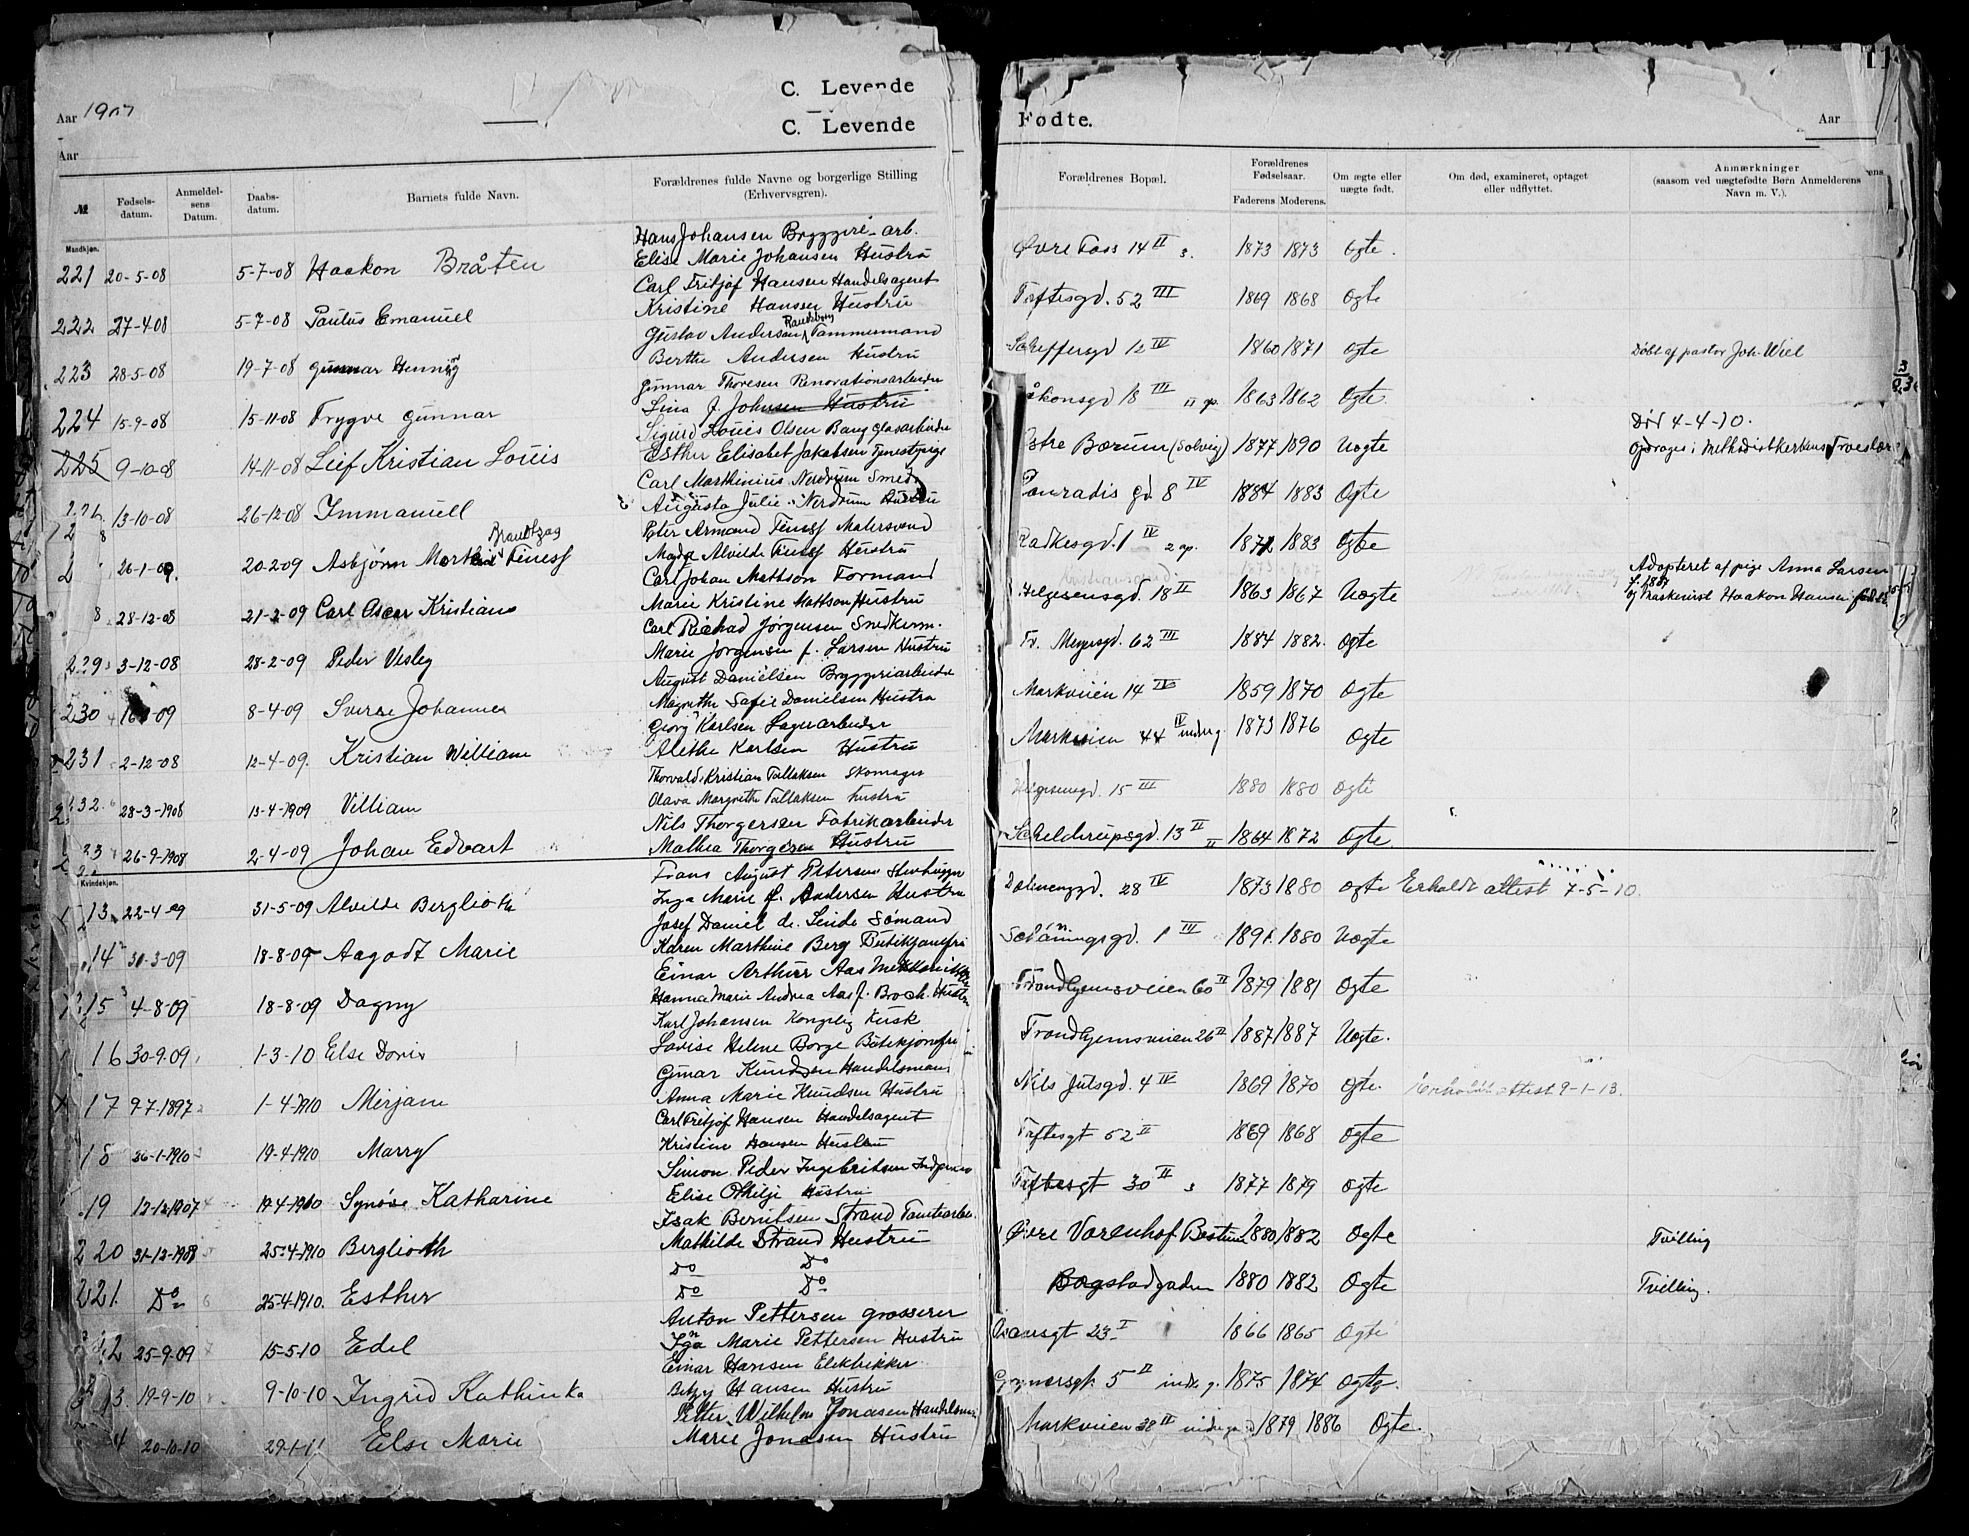 Aar 1907
C. Levende
C. Levende
Fødte.
Aar
Aar
№
Fødsels-datum.
Anmeldel-sens Datum.
Daabs-datum.
Barnets fulde Navn.
Forældrenes fulde Navne og borgerlige Stilling (Erhvervsgren).
Forældrenes Bopæl.
Forældrenes Fødselsaar.
Faderens Moderens.
Om ægte eller uægte født.
Om død, examineret, optaget eller udflyttet.
Anmærkninger (saasom ved uægtefødte Børn Anmelderens Navn m. V.).
Mandkjøn.
Hans Johansen Bryggeri-arb.
221 20-5-08 5-7-08 Haakon Bråten Elise Marie Johansen Hustru Øvre Foss 14 II s. 1873 1873 Ogte.
Carl Fritjof Hansen Handelsagent
222 27-4-08 5-7-08 Paulus Emanuel Kristine Hansen Hustru Toftesgd. 52 III 1869 1868 Ogte
Gustav Andersen Randsborg Tømmermand
223 28-5-08 19-7-08 Gunnar Henning Berthe Andersen Hustru Scheffersgd 12 IV 1860 1871 Ogte Døbt af pastor Joh. Wiel
Gunnar Thoresen Renovationsarbeider
224 15-9-08 15-11-08 Trygve Gunnar Lina J. Johnsen Hustru åkonsgd 18 III 1863 1862 Ogte.
Sigurd Louis Olsen Bang glasarbeider
225 9-10-08 14-11-08 Leif Kristian Louis Esther Elisabet Jakobsen Tjenestpige stre Bærum (Solvig) 1877 1890 Uogte Død 4-4-10.
Opdrages i Methodistkirkens
Carl Marthinius Nerdrum Smed
13-10-08 26-12-08 Immanuell Augusta Julie Nerdrum Hustru Conradis gd 8 IV 1884 1883 Ogte
Peter Armand Finess Malersvend
26-1-09. 20-2-09 Asbjørn Brandtzæg Finess Magda Alvilde Finess Hustru Radkesgd. 1 IV 2 op. 1872 1883 Ogte
Carl Johan Mattson Formand
8 28-12-08 21-2-09 Carl Oscar Kristian Marie Kristine Mattson Hustru Helgesensgd. 18 II 1863 1867 Uogte Adopteret af pige Anna Larsen
f. 1887 og Haakon Hansen
Carl Richad Jørgensen Smedkerm.
229 3-12-08 28-2-09 Peder Vesley Marie Jørgensen f. Larsen Hustru Fr. Meyersgd. 62 III 1884 1882. Ogte
August Danielsen Bryggeriarbeider
230 8-4-09 Sverre Johannes Magrethe Sofie Danielsen Hustru Markveien 14 IV 1859 1870 Ogte
Georg Karlsen Lagerarbeider
231 2-12-08 12-4-09. Kristian William Alethe Karlsen Hustru Markveien 44 IV inderg. 1873 1876 Ogte
Thorvald Kristian Tallaksen Skomager
232 28-3-1908 13-4-1909 Villiam Olava Margrethe Tallaksen Hustru Helgesensgd. 15 III 1880 1880 Ogte
Nils Thorgersen Fabrikarbeider
33 26-9-1908 2-4-09 Johan Edvart Mathea Thorgersen Hustru Schelderupsgd. 13 II 1864 1872 Ogte
Kvindekjøn.
Frans August Petersen Stenhugger
13 22-4-09 31-5-09 Alvilde Berglioth Inga Marie f. Andersen Hustru Dælenenggd. 28 IV 1873 1880 Ogte Erholdt attest 7-5-10.
Josef Daniel de Sømand
14 31-3-09 18-8-09 Aagodt Marie Karen Marthine Berg Butikjomfru Schøningsgd. 1 III 1891. 1880 Uogte
Einar Arthur Aas Mekaniker
15 4-8-09 18-8-09 Dagny Hanna Marie Andrea Aas f. Broch. Hustru Trondhjemsveien 60 II 1879 1881 Ogte
Karl Johansen Kongelig Kusk
16 30-9-09 1-3-10 Else Doris Lovise Helene Borge Butikjomfru Trondhjemsveien 26 II 1887 1887 Uogte.
Gunar Knudsen Handelsmand
17 9-7-1897 1-4-1910 Mirjam Anna Marie Knudsen Hustru Nils Julsgd. 4 IV 1869 1870 Ogte. Erholdt attest 9-1-13.
Carl Fritjof Hansen Handelsagent
18 26-1-1910 19-4-1910 Marry Kristine Hansen Hustru Toftesgt 52 II 1869 1868 Ogte
Simon Peder Ingebritsen
19 12-12-1907 19-4-1910 Synøve Katharine Elise Othilje Hustru Toftesgt 30 II s 1877 1879 Ogte
Isak Berntsen Strand
220 31-12-1908 25-4-1910 Bergliodh Mathilde Strand Hustru Øvre Vorenhof Bestum 1880 1882 Ogte Tvilling
Do Do
221. Do 25-4-1910. Esther Do Do Bogstadgaden 1880 1882 Ogte Tvilling.
Anton Pettersen grosserer
2 25-9-09 15-5-10 Edel Inga Marie Pettersen Hustru 23 I 1866 1865 Ogte
Einar Hansen Elektriker
3 19-9-10 9-10-10 Ingrid Kathinka Betzy Hansen Hustru 5 II indg. 1875 1874 Ogte.
Petter Wilhelm Jonasen Handelsmand
4 20-10-10 29-1-11 Else Marie Marie Jonasen Hustru Markveien 28 IV 1879 1886 Ogte.